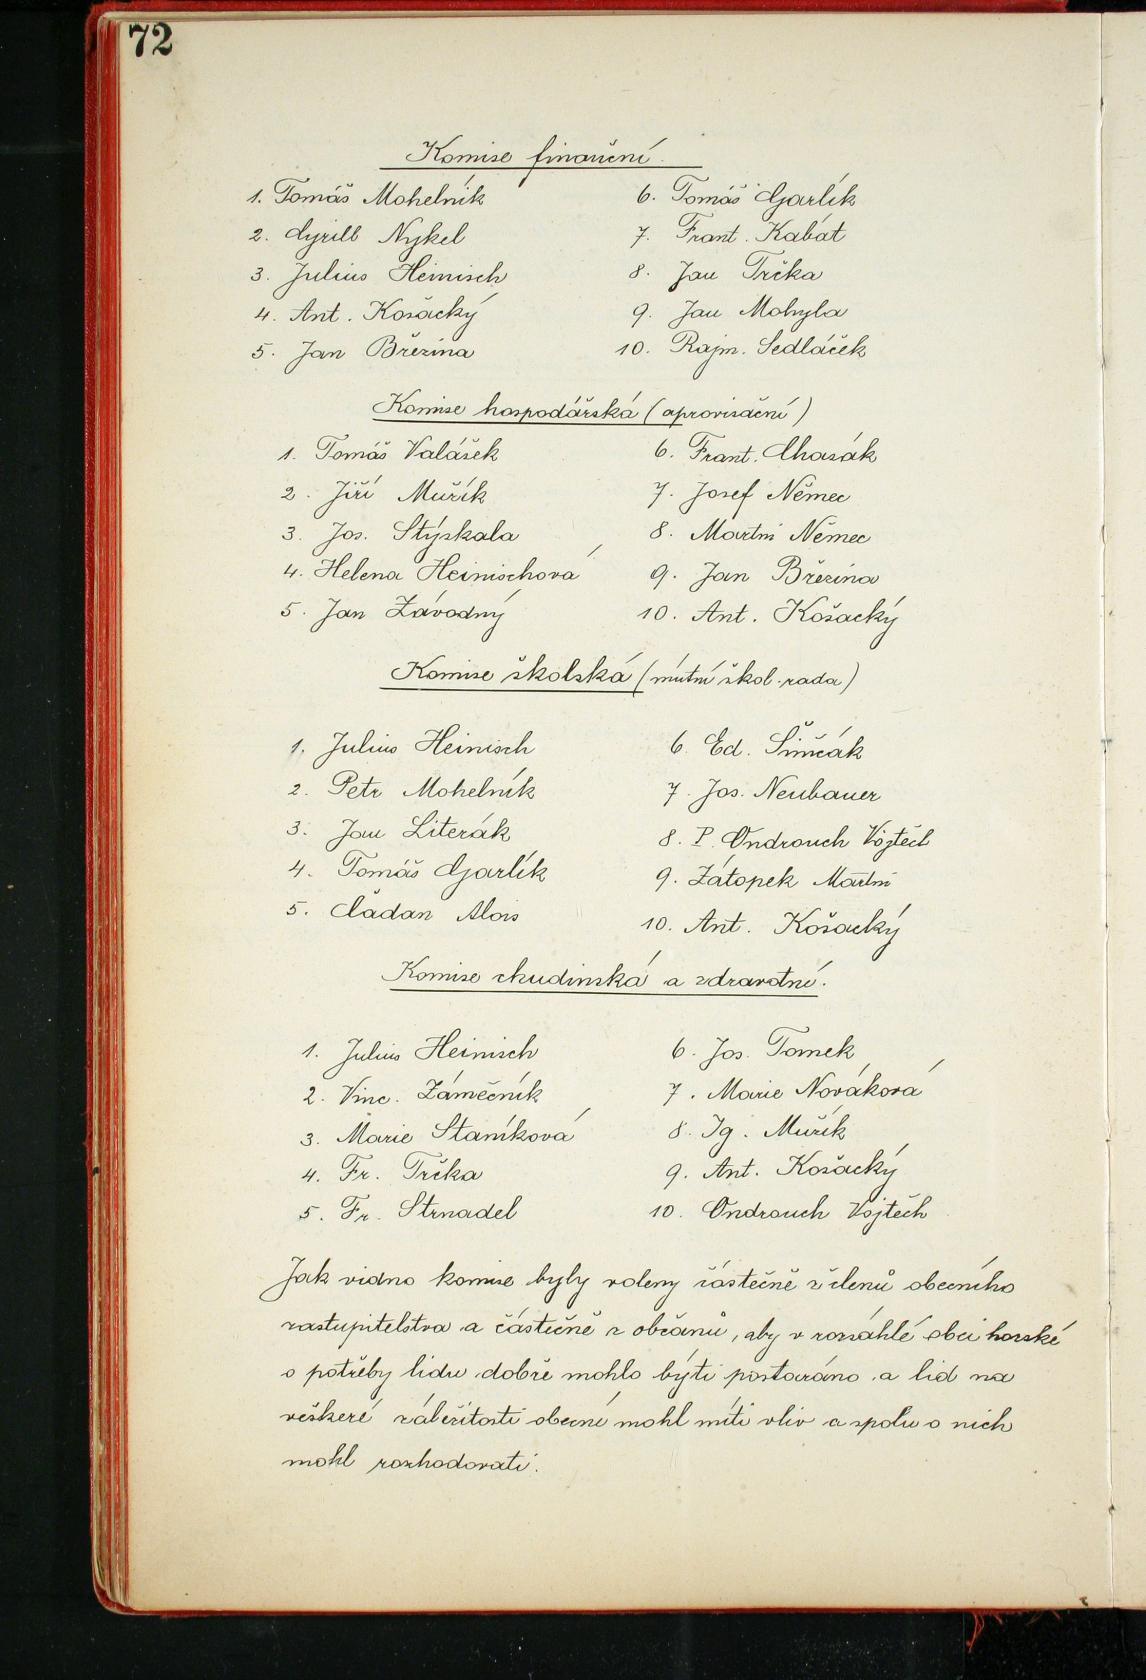 72
Komise finanční.
1. Tomáš Mohelník
2. Cyrill Nykel
3. Julius Heinisch
4. Ant. Košacký
5. Jan Březina
6. Tomáš Garlík
7. Frant. Kabát
8. Jan Trčka
9. Jan Mohyla
10. Rajm. Sedláček
Komise hospodářská (aprovisační)
1. Tomáš Valášek
2. Jiří Mužík
3. Jos. Stýskala
4. Helena Heinischová
5. Jan Závodný
6. Frant. Chasák
7. Josef Němec
8. Martin Němec
9. Jan Březina
10. Ant. Košacký
Komise školská (místní škol. rada)
1. Julius Heinisch
2. Petr Mohelník
3. Jan Literák
4. Tomáš Garlík
5. Čadan Alois
6. Ed. Šimčák
7. Jos. Neubauer
8. P. Ondrouch Vojtěch
9. Zátopek Martin
10. Ant. Košacký
Komise chudinská a zdravotní.
1. Julius Heinisch
2. Vinc. Zámečník
3. Marie Staníková
4. Fr. Trčka
5. Fr. Strnadel
6. Jos. Tomek
7. Marie Nováková
8. Ig. Mužík
9. Ant. Košacký
10. Ondrouch Vojtěch
Jak vidno komise byly voleny částečně z členů obecního
zastupitelstva a částečně z občanů, aby v rozsáhlé obci horské
o potřeby lidu dobře mohlo býti postaráno a lid na
veškeré záležitosti obecní mohl míti vliv a spolu o nich
mohl rozhodovati.